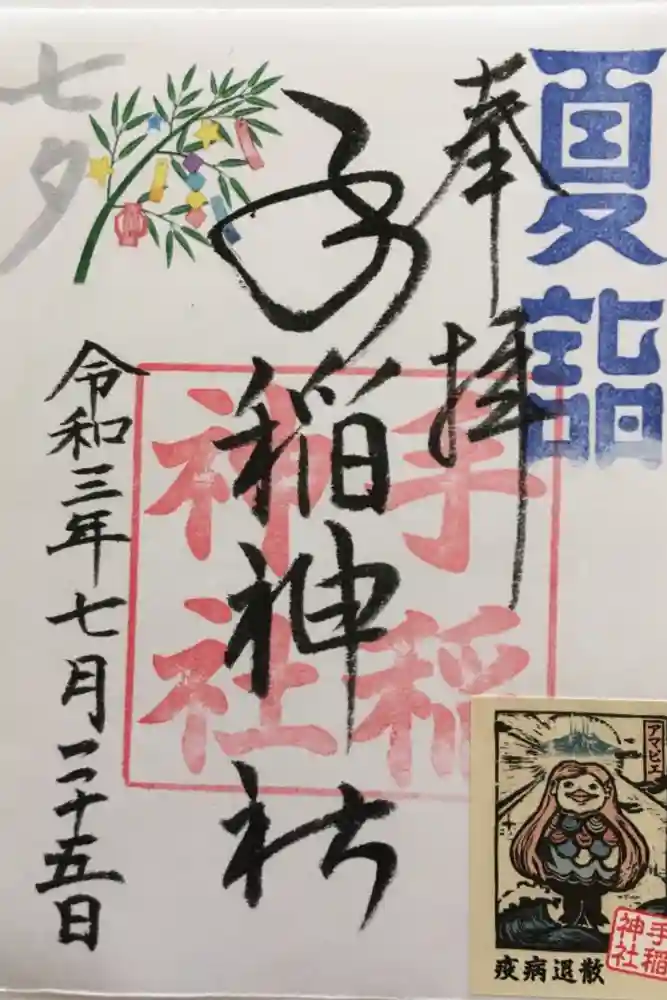 夏詣
奉拝
手稲神社
手稲神社
七夕
令和三年七月二十五日
アマビエ
疫病退散
手稲神社